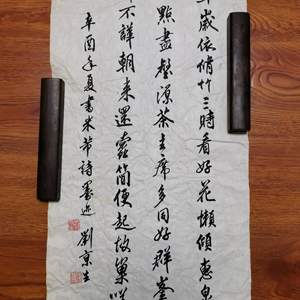 歲依脩竹三時看好花懶傾惠泉
點盡壑源茶主席多同好群峯
不譁朝来還蠹簡便起故巢嗟
辛酉年夏書米芾詩墨迹 劉京生